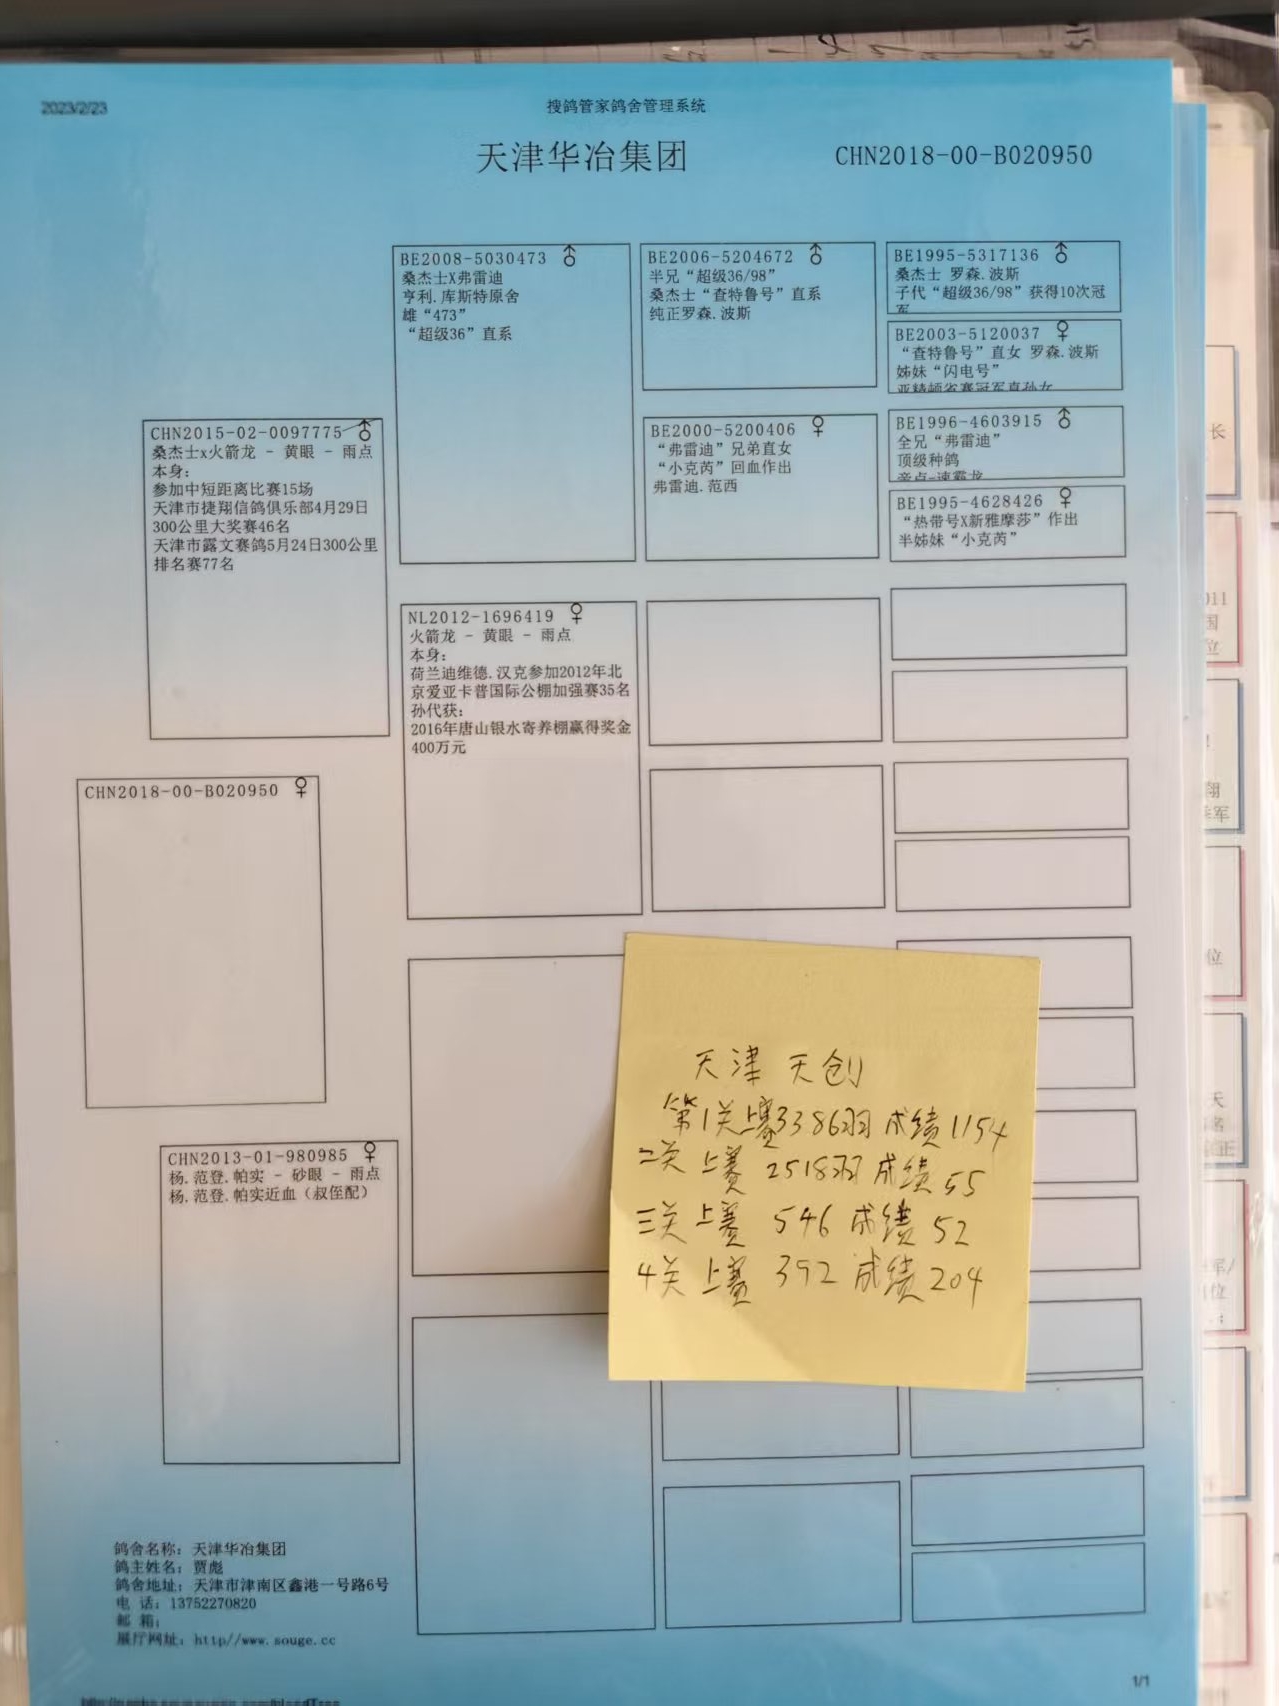 2023/2/23
搜鸽管家鸽舍管理系统
天津华冶集团
CHN2018-00-B020950
BE2008-5030473 ♂
桑杰士X弗雷迪
亨利.库斯特原舍
雄“473”
“超级36”直系
BE2006-5204672 ♂
半兄“超级36/98”
桑杰士“查特鲁号”直系
纯正罗森.波斯
BE1995-5317136 ♂
桑杰士 罗森.波斯
子代“超级36/98”获得10次冠
军
BE2003-5120037 ♀
“查特鲁号”直女 罗森.波斯
姊妹“闪电号”
亚精顿省赛冠军直孙女
CHN2015-02-0097775 ♂
桑杰士x火箭龙 - 黄眼 - 雨点
本身:
参加中短距离比赛15场
天津市捷翔信鸽俱乐部4月29日
300公里大奖赛46名
天津市露文赛鸽5月24日300公里
排名赛77名
BE2000-5200406 ♀
“弗雷迪”兄弟直女
“小克芮”回血作出
弗雷迪.范西
BE1996-4603915 ♂
全兄“弗雷迪”
顶级种鸽
BE1995-4628426 ♀
“热带号X新雅摩莎”作出
半姊妹“小克芮”
NL2012-1696419 ♀
火箭龙 - 黄眼 - 雨点
本身:
荷兰迪维德.汉克参加2012年北
京爱亚卡普国际公棚加强赛35名
孙代获:
2016年唐山银水寄养棚赢得奖金
400万元
CHN2018-00-B020950 ♀
CHN2013-01-980985 ♀
杨.范登.帕实 - 砂眼 - 雨点
杨.范登.帕实近血（叔侄配）
天津 天创
第1关上赛3386羽 成绩1154
二关 上赛 2518羽 成绩55
三关 上赛 546 成绩 52
4关 上赛 392 成绩204
鸽舍名称: 天津华冶集团
鸽主姓名: 贾彪
鸽舍地址: 天津市津南区鑫港一号路6号
电 话: 13752270820
邮 箱:
展厅网址: http//www.souge.cc
1/1